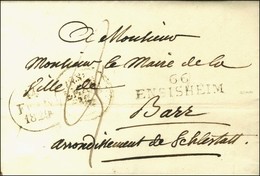 A Monsieur
Monsieur le Maire de la
Ville de
66
ENSISHEIM
Barr
arrondissement de Schlestatt.